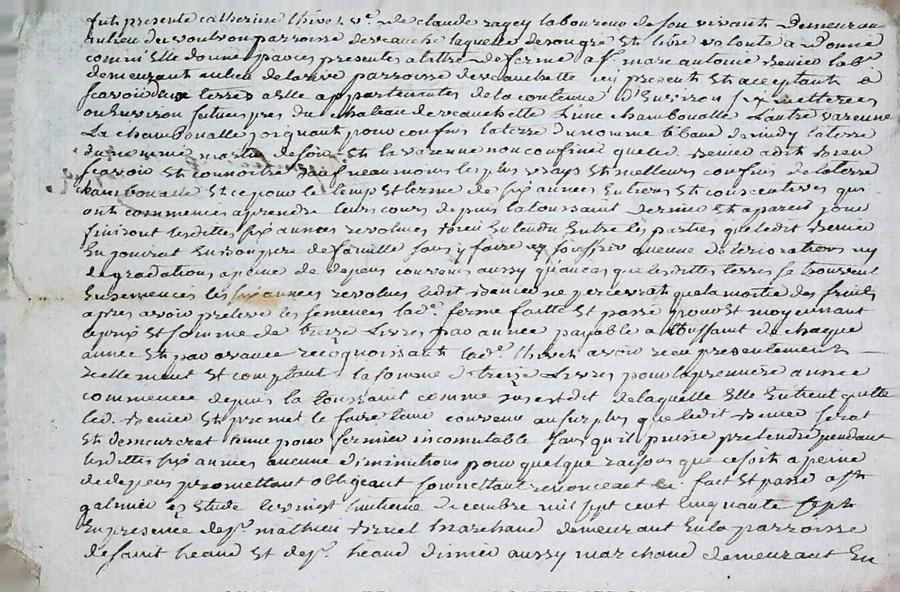 fut presente catherine thivet v.e de claude ragey laboureur de son vivant demeurant
au lieu du parroisse de veauche laquelle de son gré et libre volonté a donné
comm'elle donne par ces presentes a titre de ferme a s.r marc antoine lab.r
demeurant au lieu de la rive parroisse de veauchette icy present et acceptant a
scavoir deux terres a elle appartenantes de la contenue d'environ six metterées
ou environ scituées pres du chateau de veauchette l'une chamboualle l'autre varenne
La chamboualle joignant pour confins la terre du nomme la terre
du nommé martin de soir et la varenne non confinée que led. a dit bien
scavoir et connoitre sauf neaumoins les plus vrays et meilleurs confins de la terre
chamboualle et ce pour le temps et terme de six années entieres et consecutives qui
ont commencés a prendre leurs cours depuis la toussaint derniere et a pareil jour
finiront lesdites six années revolues bien entendu entre les parties que ledit
en jouirat en bon pere de famille sans y faire ny souffrir aucune deteriorations ny
degradations a peine de depens convenu aussy qu'au cas que lesdittes terres se trouvent
ensemencés les six années revolues ledit ne percevrat que la moitié des fruits
apres avoir prelevé les semences lad.e ferme faitte et passé pour et moyennant
le prix et somme de treize Livres par année payable a toussaint de chaque
année et par avance recognoissant lad.e thivet avoir recu presentement
reellement et comptant la somme de treize Livres pour la premiere année
commencée depuis la toussaint comme sus est dit de laquelle elle entient quitte
led. et promet le faire tenir convenu au surplus que ledit serat
et demeurerat tenu pour fermier incomutable sans qu'il puisse pretendre pendant
lesdittes six années aucune diminutions pour quelque raisons que ce soit a peine
de depens promettant obligeant soumettant renonceant fait et passé a st
galmier es etude le vingt huitieme decembre mil sept cent cinquante sept
en presence de s.r mathieu marchand demeurant en la parroisse
de saint heand et de s.r heand dimier aussy marchand demeurant en